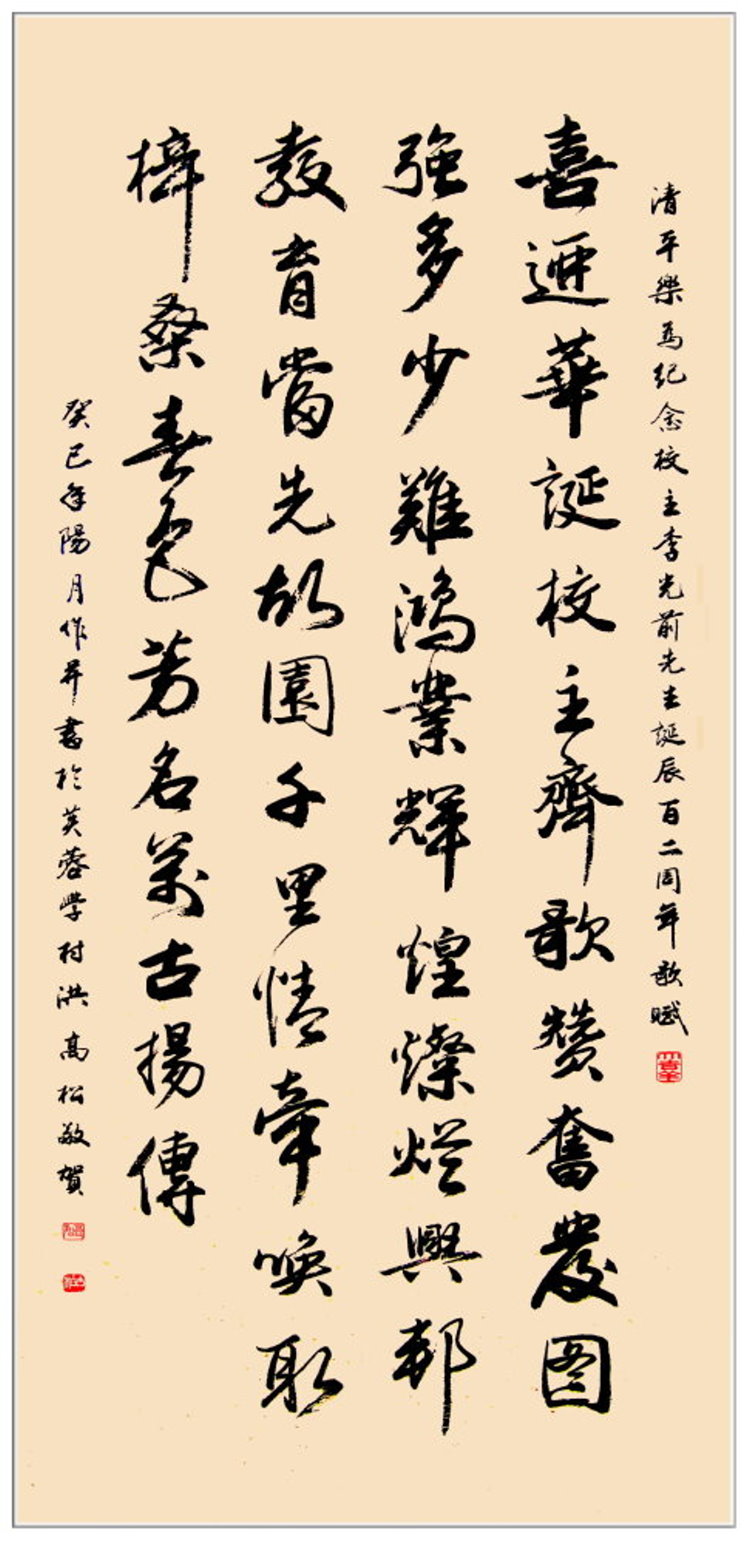 清平樂為纪念校主李光前先生誕辰百二周年歌賦
喜逦華誕校主齊歌赞奮發图
強多少難鸿業輝煌燦烂興邦
教育當先故園千里情牽喚取
梓桑春色芳名萬古揚傳
癸巳年陽月作并書於芙蓉學村洪高松敬賀